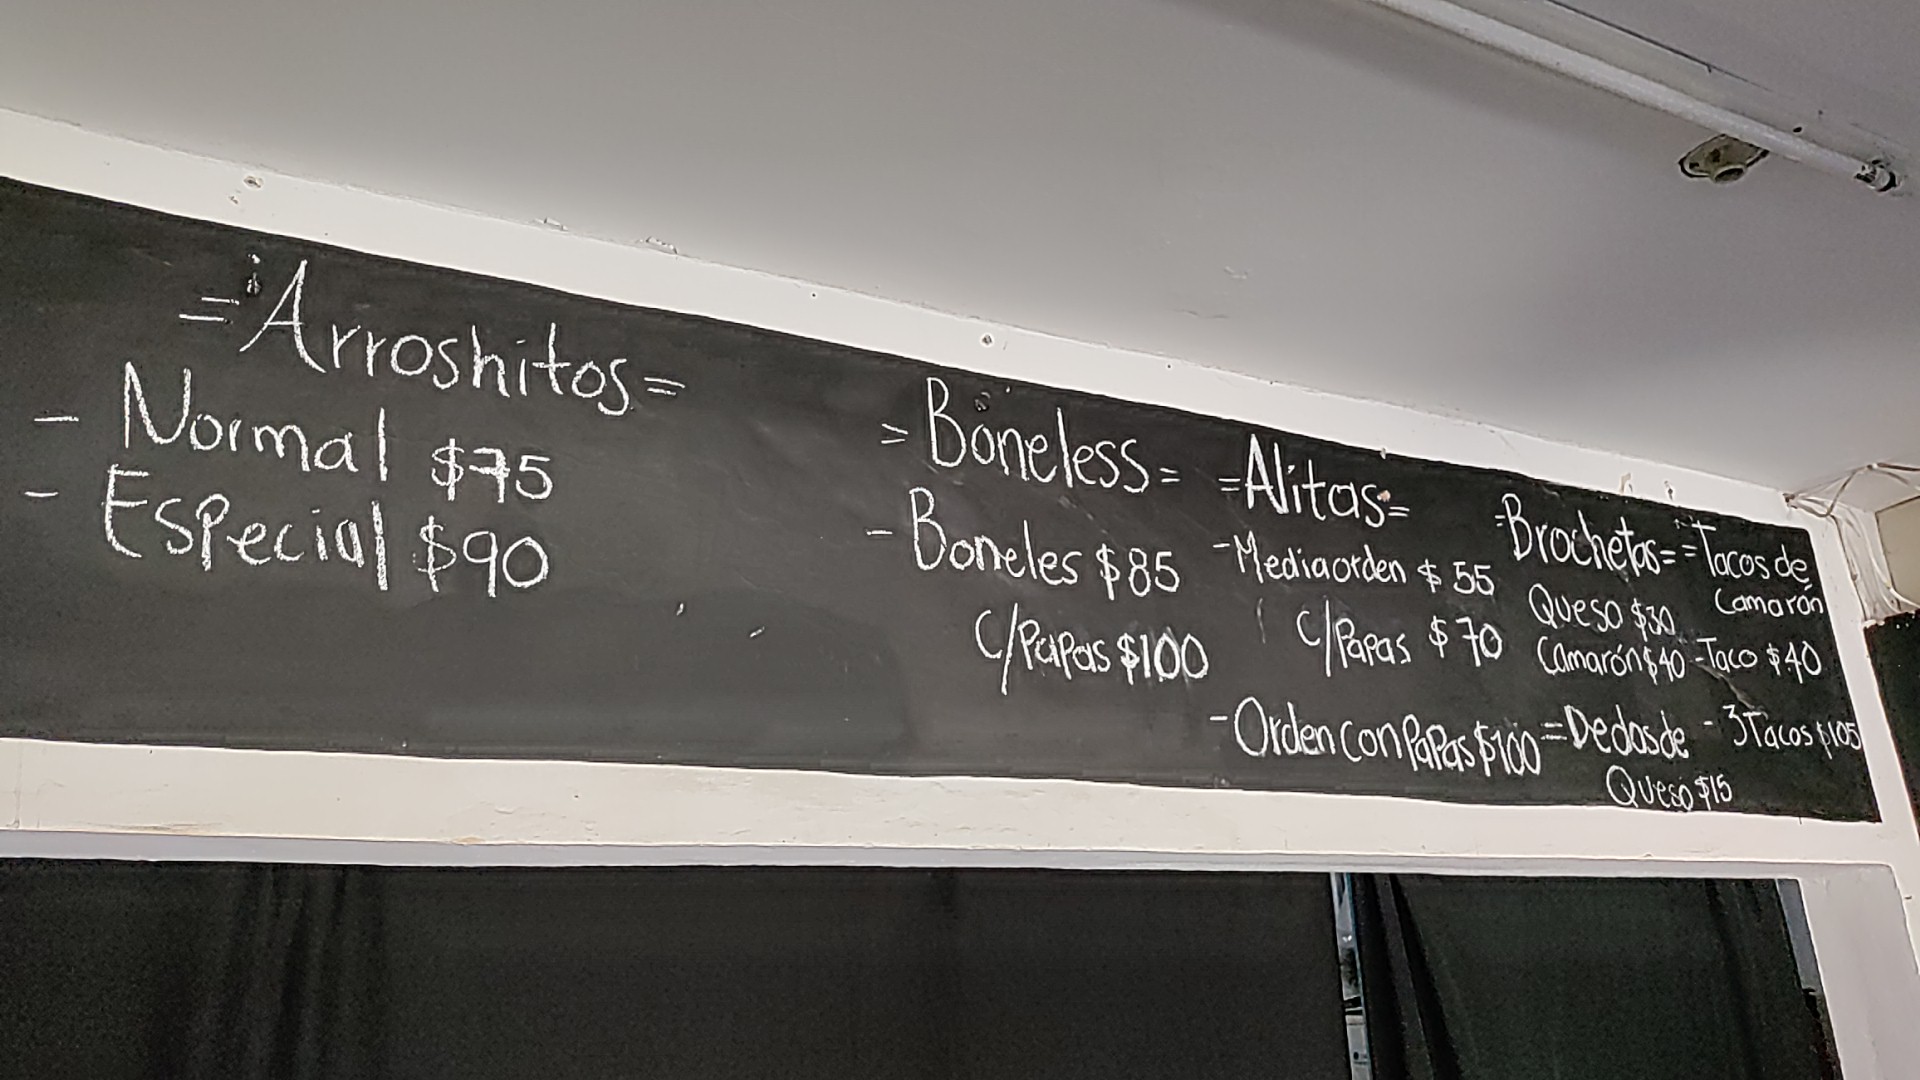 =Arroshitos=
- Normal $75
- Especial $90
= Boneless =
- Boneles $85
C/Papas $100
=Alitas=
-Mediaorden $55
C/Papas $70
- Orden con Papas $100
=Brochetas=
Queso $30
Camarón $40
=Dedos de
Queso $15
=Tacos de
Camarón
-Taco $40
- 3Tacos $105